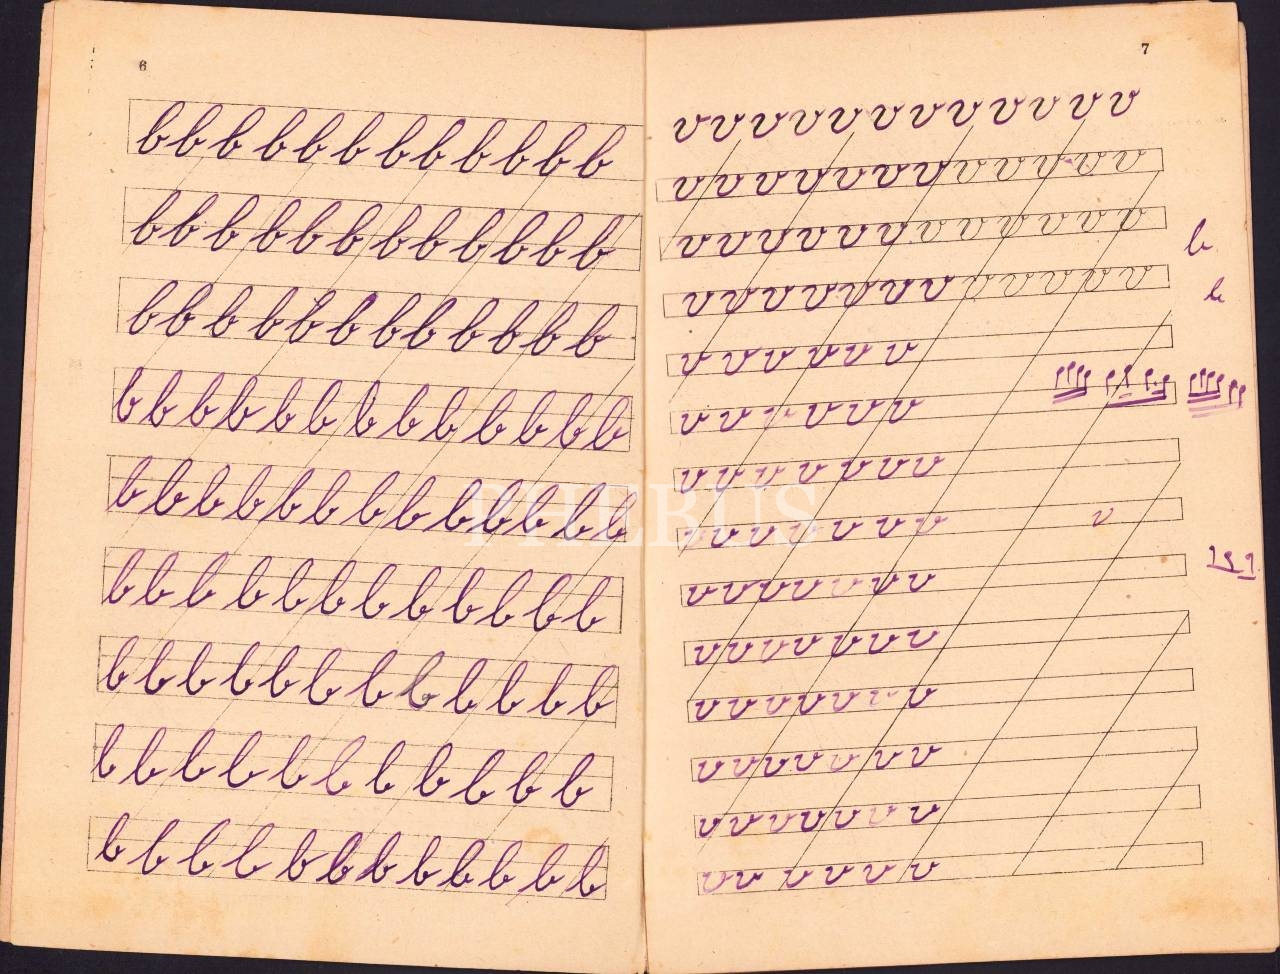 6
b b b b b b b b b b b b
b b b b b b b b b b b b
b b b b b b b b b b b b
b b b b b b b b b b b b b
b b b b b b b b b b b b b
b b b b b b b b b b b b
b b b b b b b b b b b b
b b b b b b b b b b b
b b b b b b b b b b b b
7
v v v v v v v v v v v v
v v v v v v v v v v v v
v v v v v v v v v v v v
b
v v v v v v v v v v v v
b
v v v v v v
v v v v v v
v v v v v v v
v v v v v v v v
v v v v v v v
v v v v v v v
v v v v v v v
v v v v v v v
v v v v v v v
v v v v v v
PHEBUS